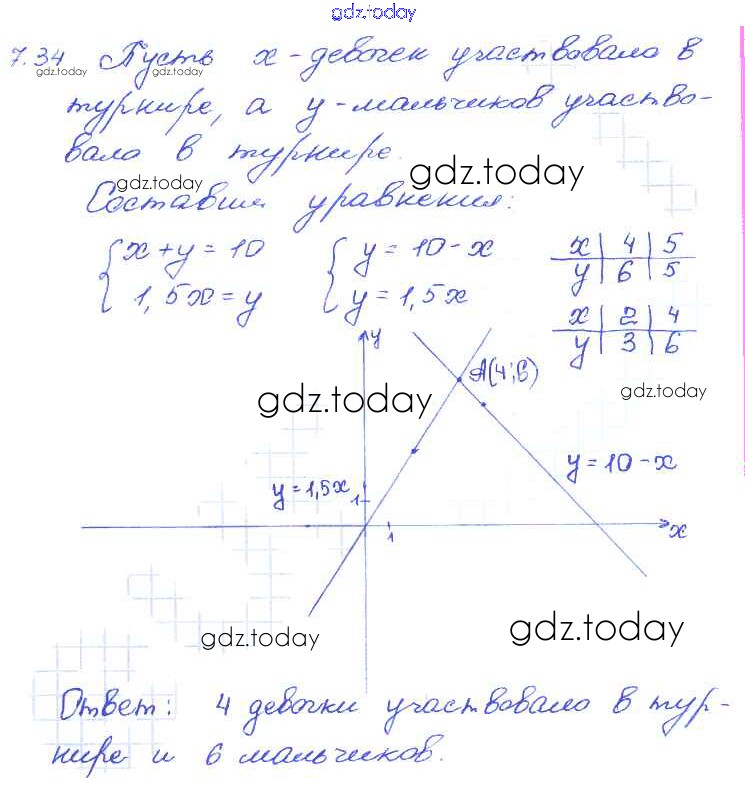 gdz.today
7.34 Пусть x - девочек участвовало в
gdz.today gdz.today
турнире, а y - мальчиков участво-
вало в турнире.
gdz.today gdz.today
Составим уравнения:
{ x + y = 10 { y = 10 - x x | 4 | 5
{ 1,5x = y { y = 1,5x y | 6 | 5
x | 2 | 4
y | 3 | 6
y
A(4;6)
gdz.today gdz.today
y = 10 - x
y = 1,5x 1
1 x
gdz.today gdz.today
Ответ: 4 девочки участвовало в тур-
нире и 6 мальчиков.